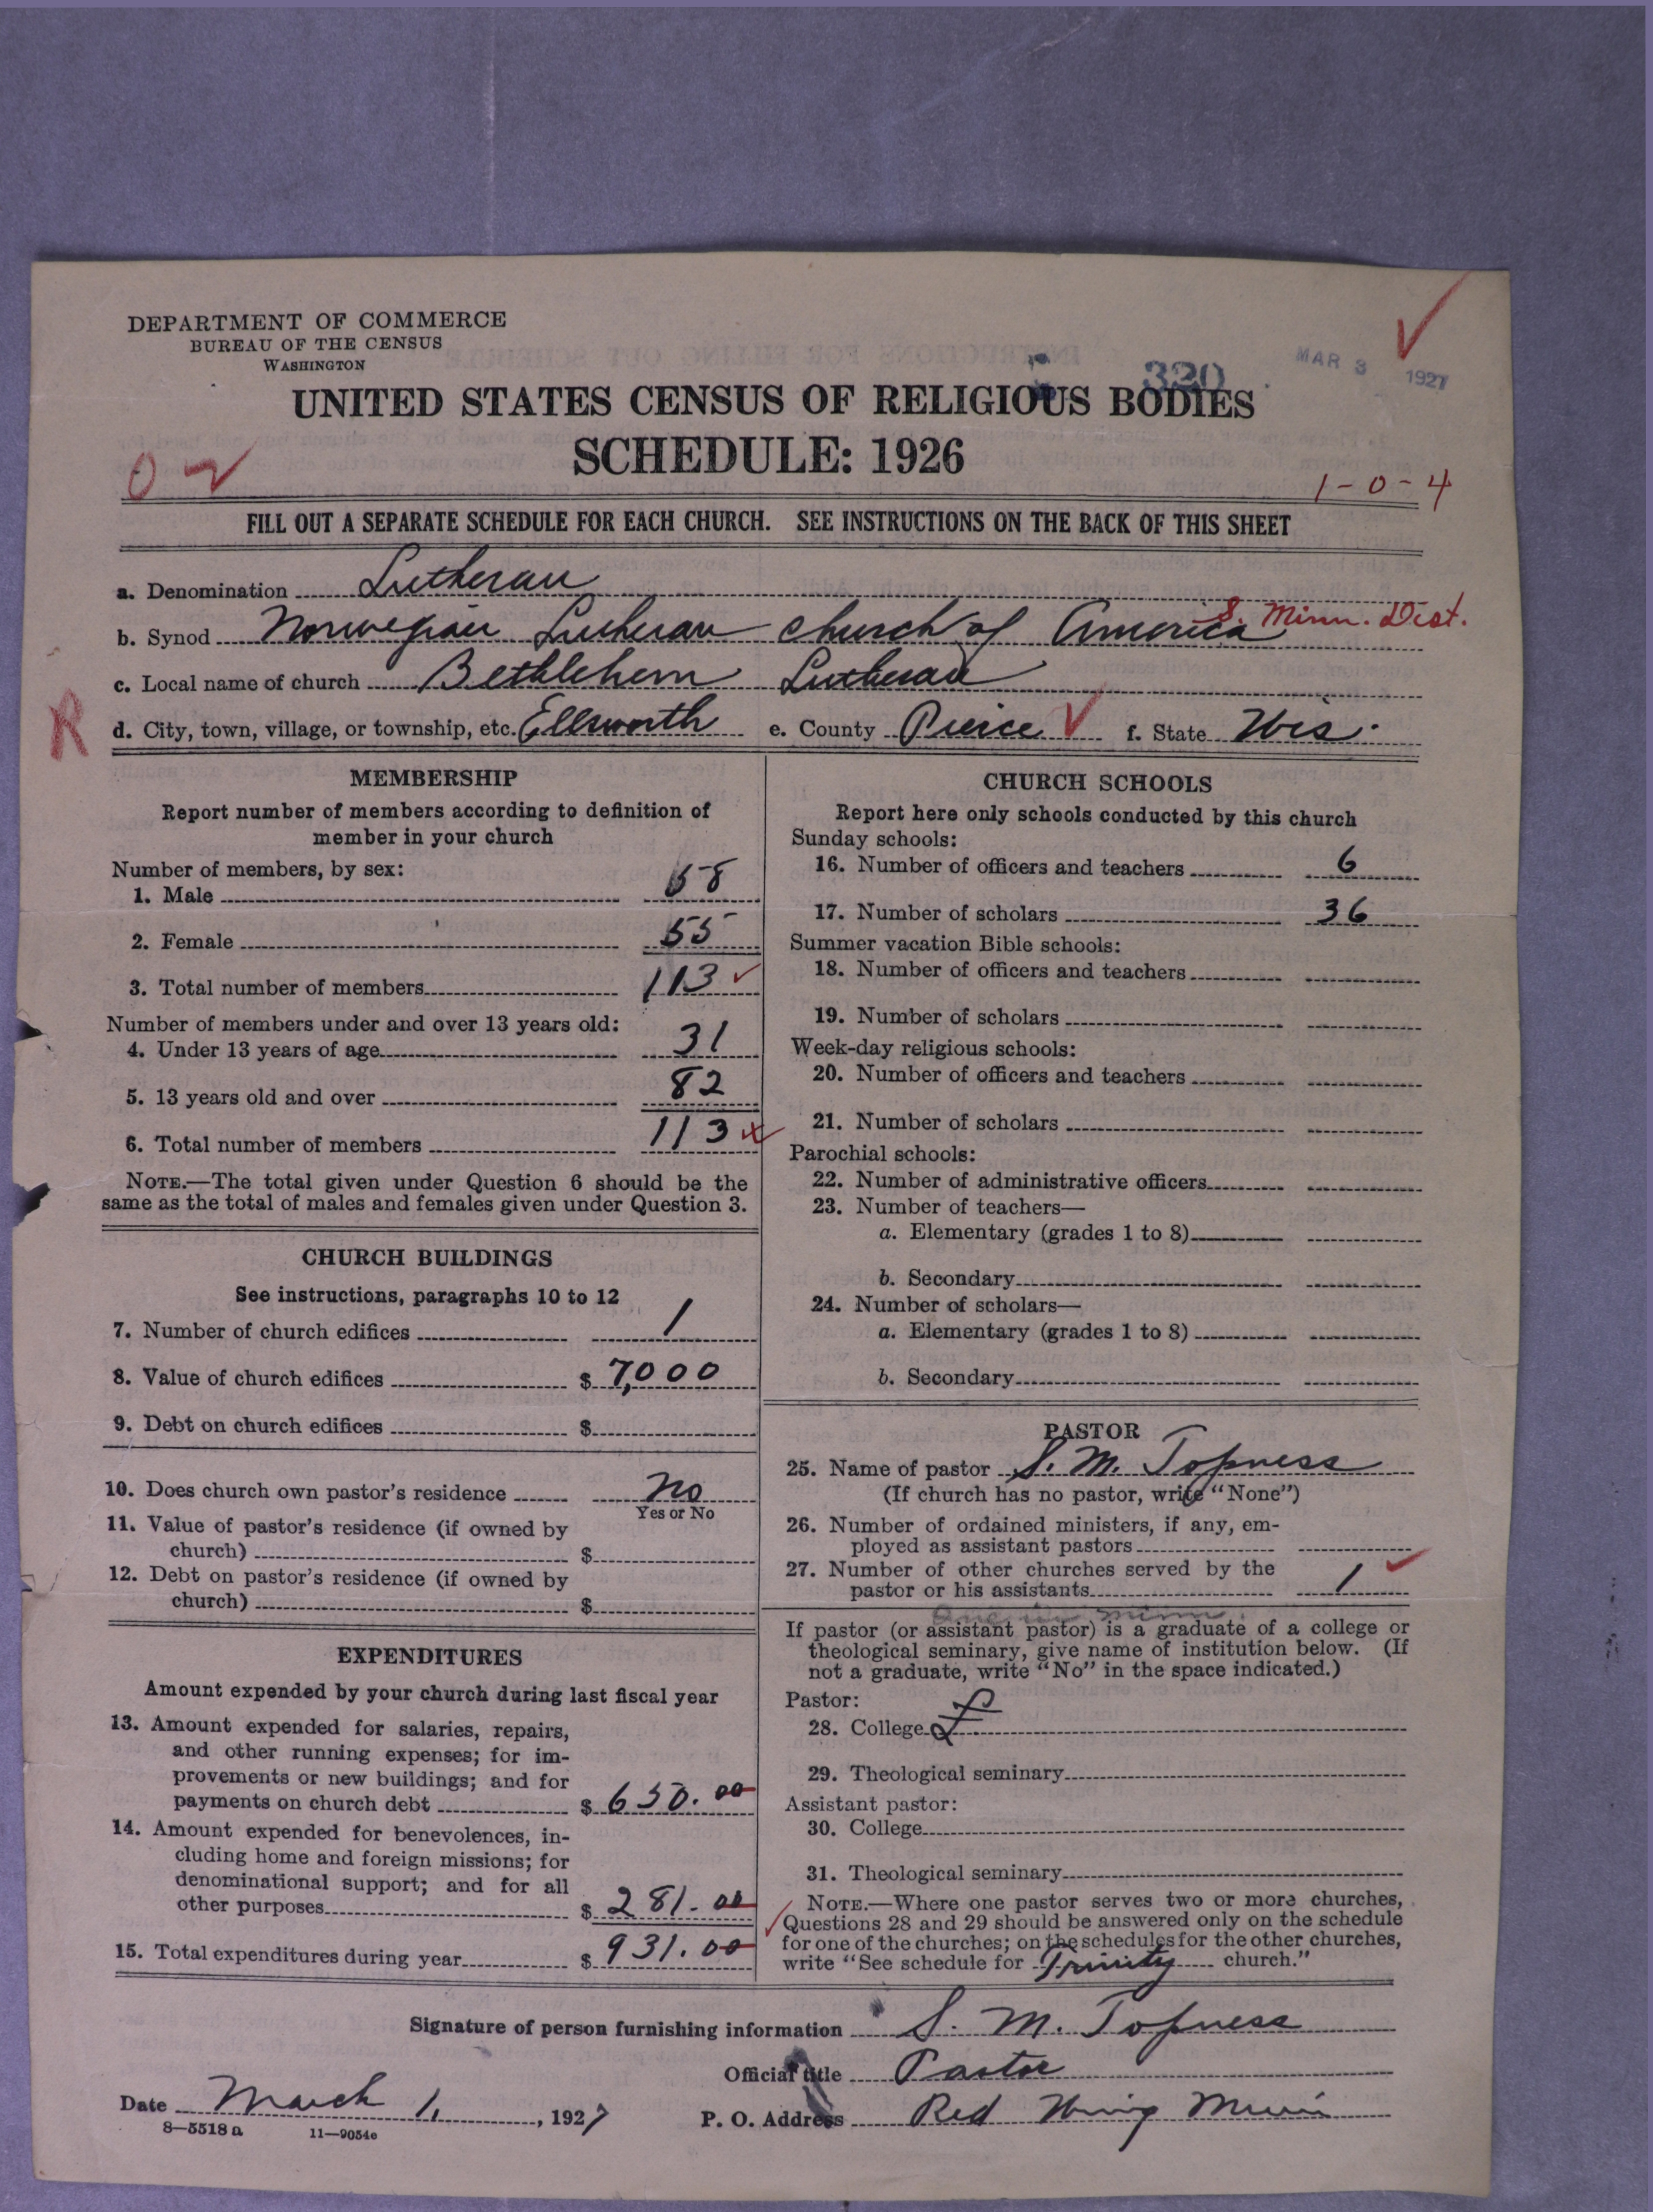 DEPARTMENT OF COMMERCE
BUREAU OF THE CENSUS
WASHINGTON
320
MAR 3 1927
UNITED STATES CENSUS OF RELIGIOUS BODIES
SCHEDULE: 1926
1-0-4
FILL OUT A SEPARATE SCHEDULE FOR EACH CHURCH. SEE INSTRUCTIONS ON THE BACK OF THIS SHEET
a. Denomination Lutheran
b. Synod Norwegian Lutheran Church of America S. Minn. Dist.
c. Local name of church Bethlehem Lutheran
R
d. City, town, village, or township, etc. Ellsworth e. County Pierce f. State Wis.
MEMBERSHIP
Report number of members according to definition of
member in your church
Number of members, by sex:
1. Male 58
2. Female 55
3. Total number of members 113
Number of members under and over 13 years old:
4. Under 13 years of age 31
5. 13 years old and over 82
6. Total number of members 113
NOTE.—The total given under Question 6 should be the
same as the total of males and females given under Question 3.
CHURCH BUILDINGS
See instructions, paragraphs 10 to 12
7. Number of church edifices 1
8. Value of church edifices $ 7,000
9. Debt on church edifices $
10. Does church own pastor's residence No
Yes or No
11. Value of pastor's residence (if owned by
church) $
12. Debt on pastor's residence (if owned by
church) $
EXPENDITURES
Amount expended by your church during last fiscal year
13. Amount expended for salaries, repairs,
and other running expenses; for im-
provements or new buildings; and for
payments on church debt $ 650.00
14. Amount expended for benevolences, in-
cluding home and foreign missions; for
denominational support; and for all
other purposes $ 281.00
15. Total expenditures during year $ 931.00
CHURCH SCHOOLS
Report here only schools conducted by this church
Sunday schools:
16. Number of officers and teachers 6
17. Number of scholars 36
Summer vacation Bible schools:
18. Number of officers and teachers
19. Number of scholars
Week-day religious schools:
20. Number of officers and teachers
21. Number of scholars
Parochial schools:
22. Number of administrative officers
23. Number of teachers—
a. Elementary (grades 1 to 8)
b. Secondary
24. Number of scholars—
a. Elementary (grades 1 to 8)
b. Secondary
PASTOR
25. Name of pastor S. M. Topness
(If church has no pastor, write "None")
26. Number of ordained ministers, if any, em-
ployed as assistant pastors
27. Number of other churches served by the
pastor or his assistants 1
If pastor (or assistant pastor) is a graduate of a college or
theological seminary, give name of institution below. (If
not a graduate, write "No" in the space indicated.)
Pastor:
28. College
29. Theological seminary
Assistant pastor:
30. College
31. Theological seminary
NOTE.—Where one pastor serves two or more churches,
Questions 28 and 29 should be answered only on the schedule
for one of the churches; on the schedules for the other churches,
write "See schedule for Trinity church."
Signature of person furnishing information S. M. Topness
Official title Pastor
Date March 1, 1927 P. O. Address Red Wing Minn
8—5518 a 11—9054c